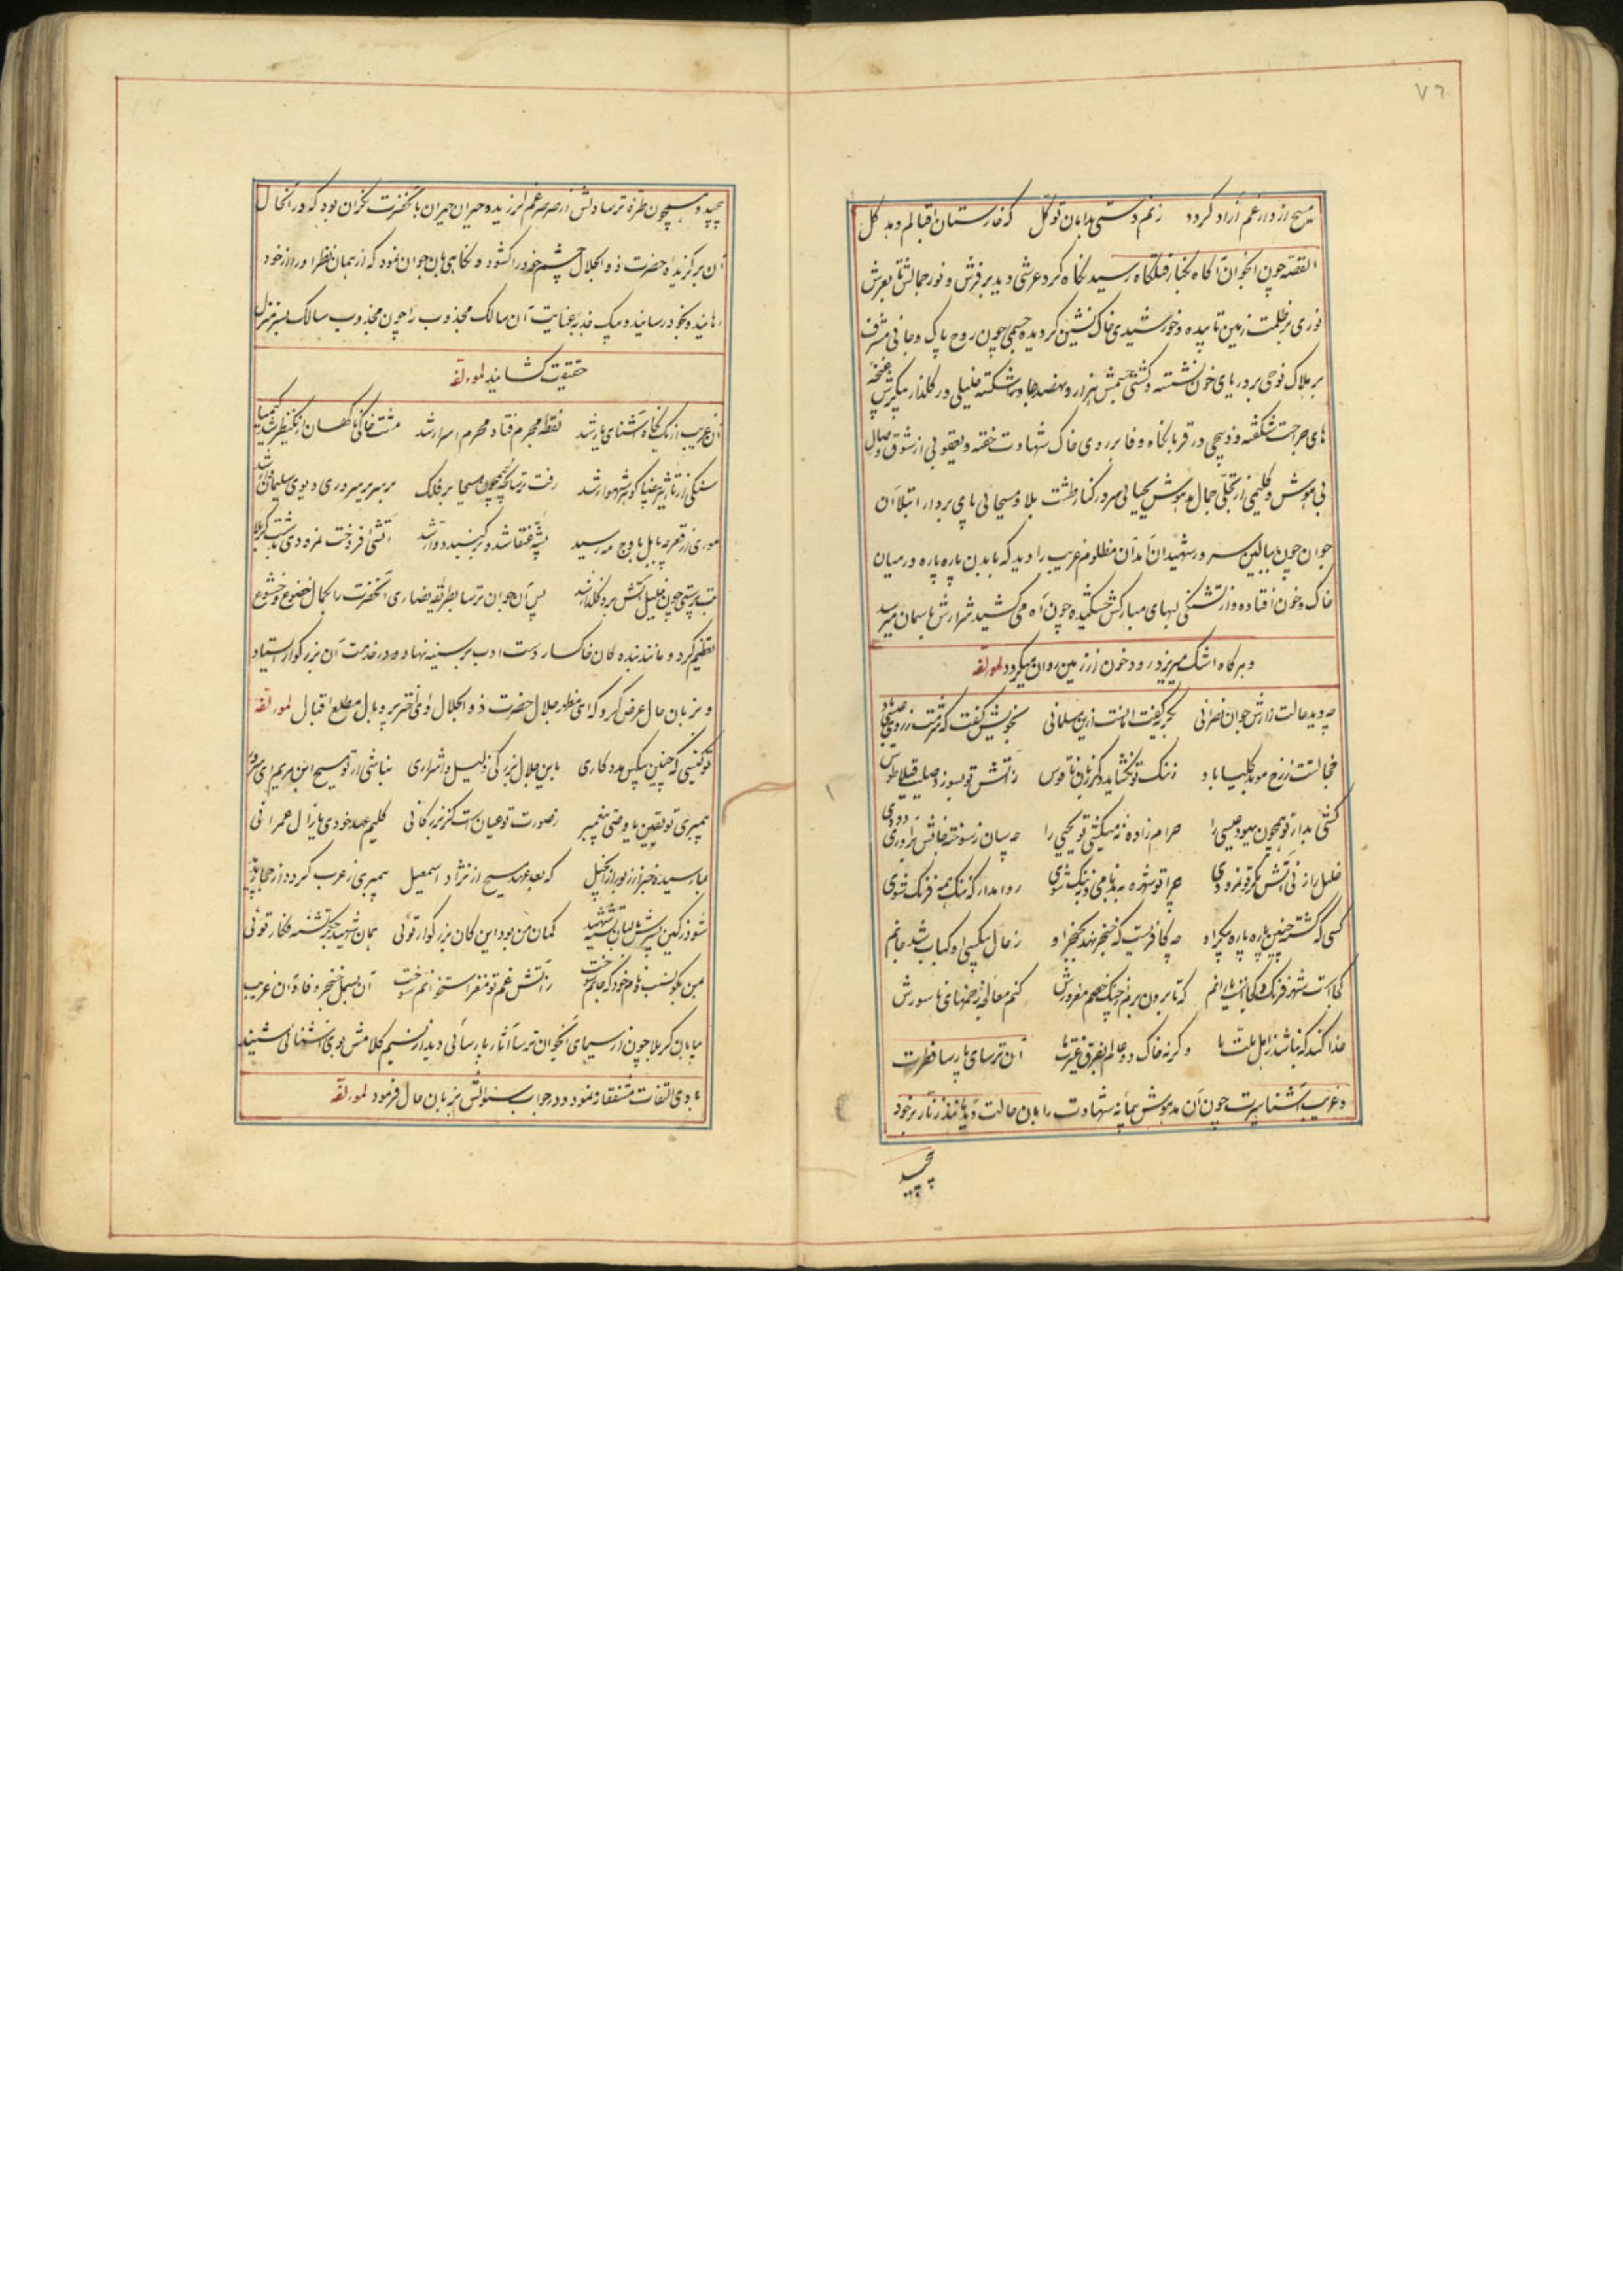 ۷۶
مسیح از دار غم آزاد کردد زنم دستی بدامان توکل که خارستان اقبالم دهد کل
القصه چون آنجوان آکاه بکنار قتلکاه رسید نکاه کرد عرشی دید بر فرش و نور جمالش تا بعرش
نوری بر ظلمت زمین تابیده و خورشیدی خاک نشین کردیده جسمی چون روح پاک و جانی مشرف
بر هلاک نوحی بر دریای خون نشسته و کشتی جسمش هزار و نهصد جا درهم شکسته خلیلی در کلذار پیکرش غنچه
های جراحت شکفته و ذبیحی در قربانکاه وفا بر روی خاک شهادت خفته و یعقوبی از شوق وصال
بی هوش و کلیمی از تجلی جمال مدهوش یحیائی سر در کنار طشت بلا و مسیحائی پای بر دار ابتلا آن
جوان چون ببالین سرور شهیدان آمد آن مظلوم غریب را دید که با بدن پاره پاره در میان
خاک و خون افتاده و از تشنکی لبهای مبارکش خشکیده چون آه می کشید شرارش باسمان میرسد
و هر کاه اشک میریزد رود خون از زمین روان میکردد لمؤلفه
چه دید حالت زارش جوان نصرانی بکریه کفت امانت ازین مسلمانی بخویش کفت که شرمت ز روی عیسی باد
خجالتت ز رخ موبد کلیسا باد ز ننک تو نکشاید دکر زبان ناقوس ز آتش تو بسوزد صلیب قیلاطوس
کشی بدار تو همچون یهود عیسی را حرام زاده نه میکشی تو یحیی را چه سان ز سوخته جانش براوری دودی
خلیل را زنی آتش مکر تو نمرودی چرا تو شهره به بدنامی و به ننک شوی روا مدار که ننک همه فرنک شوی
کسی که کشته چنین پاره پاره پیکر او چه کافریست که خنجر نهد بحنجر او ز حال بیکسی او کباب شد جانم
کجاست شهر فرنک و کجاست یارانم که تا برون برم از چنک خصم مغرورش کنم معالجه زخمهای ناسورش
خدا کند که نباشد ز اهل ملت ما وکرنه خاک دو عالم بفرق غیرت ما آن ترسای پارسا فطرت
و غریب آشنا سیرت چون آن مدهوش پیمانه شهادت را بان حالت دید مانند زنار بر خود
پیچید
پیچید و همچون طره ترسا دلش از صرصر غم لرزیده حیران حیران بآنحضرت نکران بود که در آنحال
آن برکزیده حضرت ذو الجلال چشم خود را کشود و نکاهی بان جوان نمود که از همان نظر او را از خود
رهانیده بخود رسانید و بیک جذبه عنایت آن سالک مجذوب را چون مجذوب سالک بسر منزل
حقیقت کشانید لمؤلفه
آن غریب از یک نکاه آشنای یار شد نقطه مجرم فتاد و محرم اسرار شد مشت خاکی ناکهان از یک نظر شد کیمیا
سنکی از تاثیر بیضا کوهر شهوار شد رفت ترسا بچه همچون مسیحا بر فلک بر سریر سروری دیوی سلیمان وار شد
موری از قعر چه بابل باوج مه رسید پشه عنقا شد و بر کنبد دوار شد آتشی افروخت نمرودی بدشت کربلا
بت پرستی چون خلیل آتش بر او کلذار شد پس آن جوان ترسا بطریقه نصاری آنحضرت را بکمال خضوع و خشوع
تعظیم کرد و مانند بنده کان خاکسار دست ادب بر سینه نهاد و در خدمت آن بزرکوار استاد
و بزبان حال عرض کرد که ای مظهر جلال حضرت ذو الجلال و ای اختر پر وبال مطلع اقبال لمؤلفه
تو کیستی که چنین بیکس مدد کاری باین جلال بزرکی ذلیل و اشراری نباشی ار تو مسیح ابن مریم ای سرور
پیمبری تو یقین یا وصی پیغمبر ز صورت تو عیان است کز بزرکانی کلیم عهد خودی یا ز آل عمرانی
بما رسیده خبر از زبور از انجیل که بعد عهد مسیح از نژاد اسمعیل پیمبری ز عرب کردد از حجاز پدید
شود ز کین پسرش با لبان تشنه شهید کمان من بود این کان بزرکوار توئی همان شهید جکر تشنه فکار توئی
بمن بکو نسب و نام خود که جانم سوخت ز آتش غم تو مغز استخوانم سوخت آن بسمل خنجر جفا و آن غریب
بیابان کربلا چون از سیمای آنجوان ترسا آثار پارسائی دید از نسیم کلامش بوی آشنائی شنید
باو وی التفات مشفقانه نمود و در جواب سئوالش بزبان حال فرمود لمؤلفه